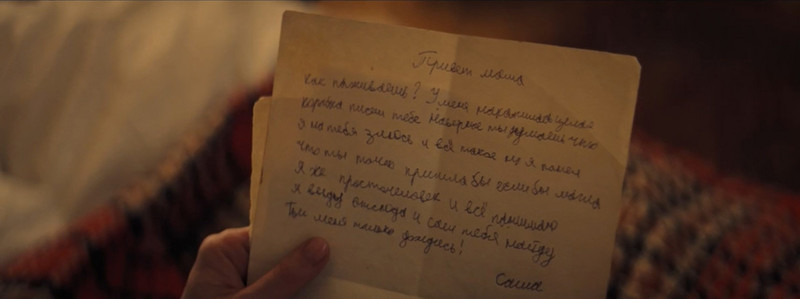 Привет мама
как поживаешь? У меня накопилась целая
коробка писем тебе наверное ты думаешь что
я на тебя злюсь и всё такое но я понял
что ты точно пришла бы если бы могла
Я же простой человек и всё понимаю
Я выйду отсюда и сам тебя найду
Ты меня только дождись!
Саша